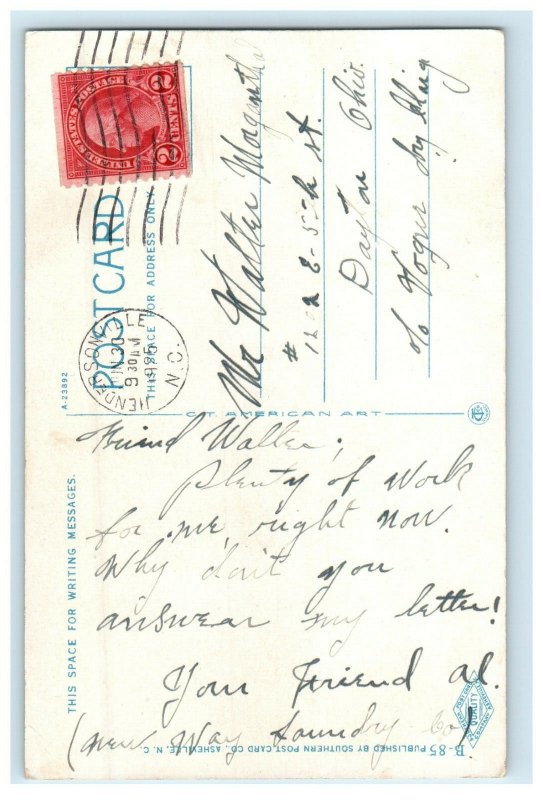 UNITED STATES POSTAGE
2 CENTS 2
HENDERSONVILLE
JUN 30
9 30 AM
1925
N.C.
POST CARD
THIS SPACE FOR ADDRESS ONLY
Mr Walter
# 1202 E-5th St.
Dayton Ohio
c/o
A-23892
C.T. AMERICAN ART
THIS SPACE FOR WRITING MESSAGES.
Friend Walter;
Plenty of work
for me, right now.
Why don't you
answear my letter!
Your friend Al.
(New Way Laundry Co)
B-85 PUBLISHED BY SOUTHERN POST CARD CO., ASHEVILLE, N. C.
QUALITY